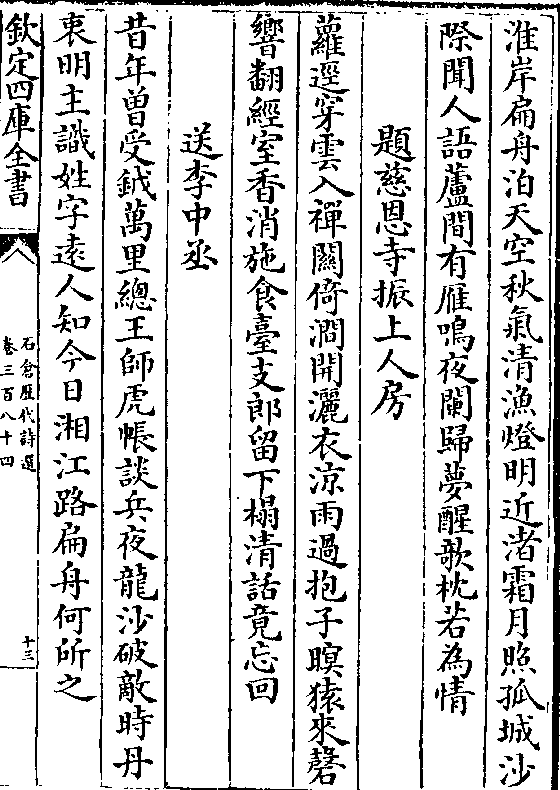 淮岸扁舟泊天空秋氣清漁燈明近渚霜月照孤城沙
際聞人語蘆間有雁鳴夜闌歸夢醒歌枕若為情
題慈恩寺振上人房
蘿逕穿雲入禪關倚澗開灑衣涼雨過抱子暝猿來磬
響翻經室香消施食臺支郎留下榻清話竟忘回
送李中丞
昔年曾受鉞萬里總王師虎帳談兵夜龍沙破敵時丹
衷明主識姓字遠人知今日湘江路扁舟何所之
欽定四庫全書
石倉歷代詩選
卷三百八十四
十三